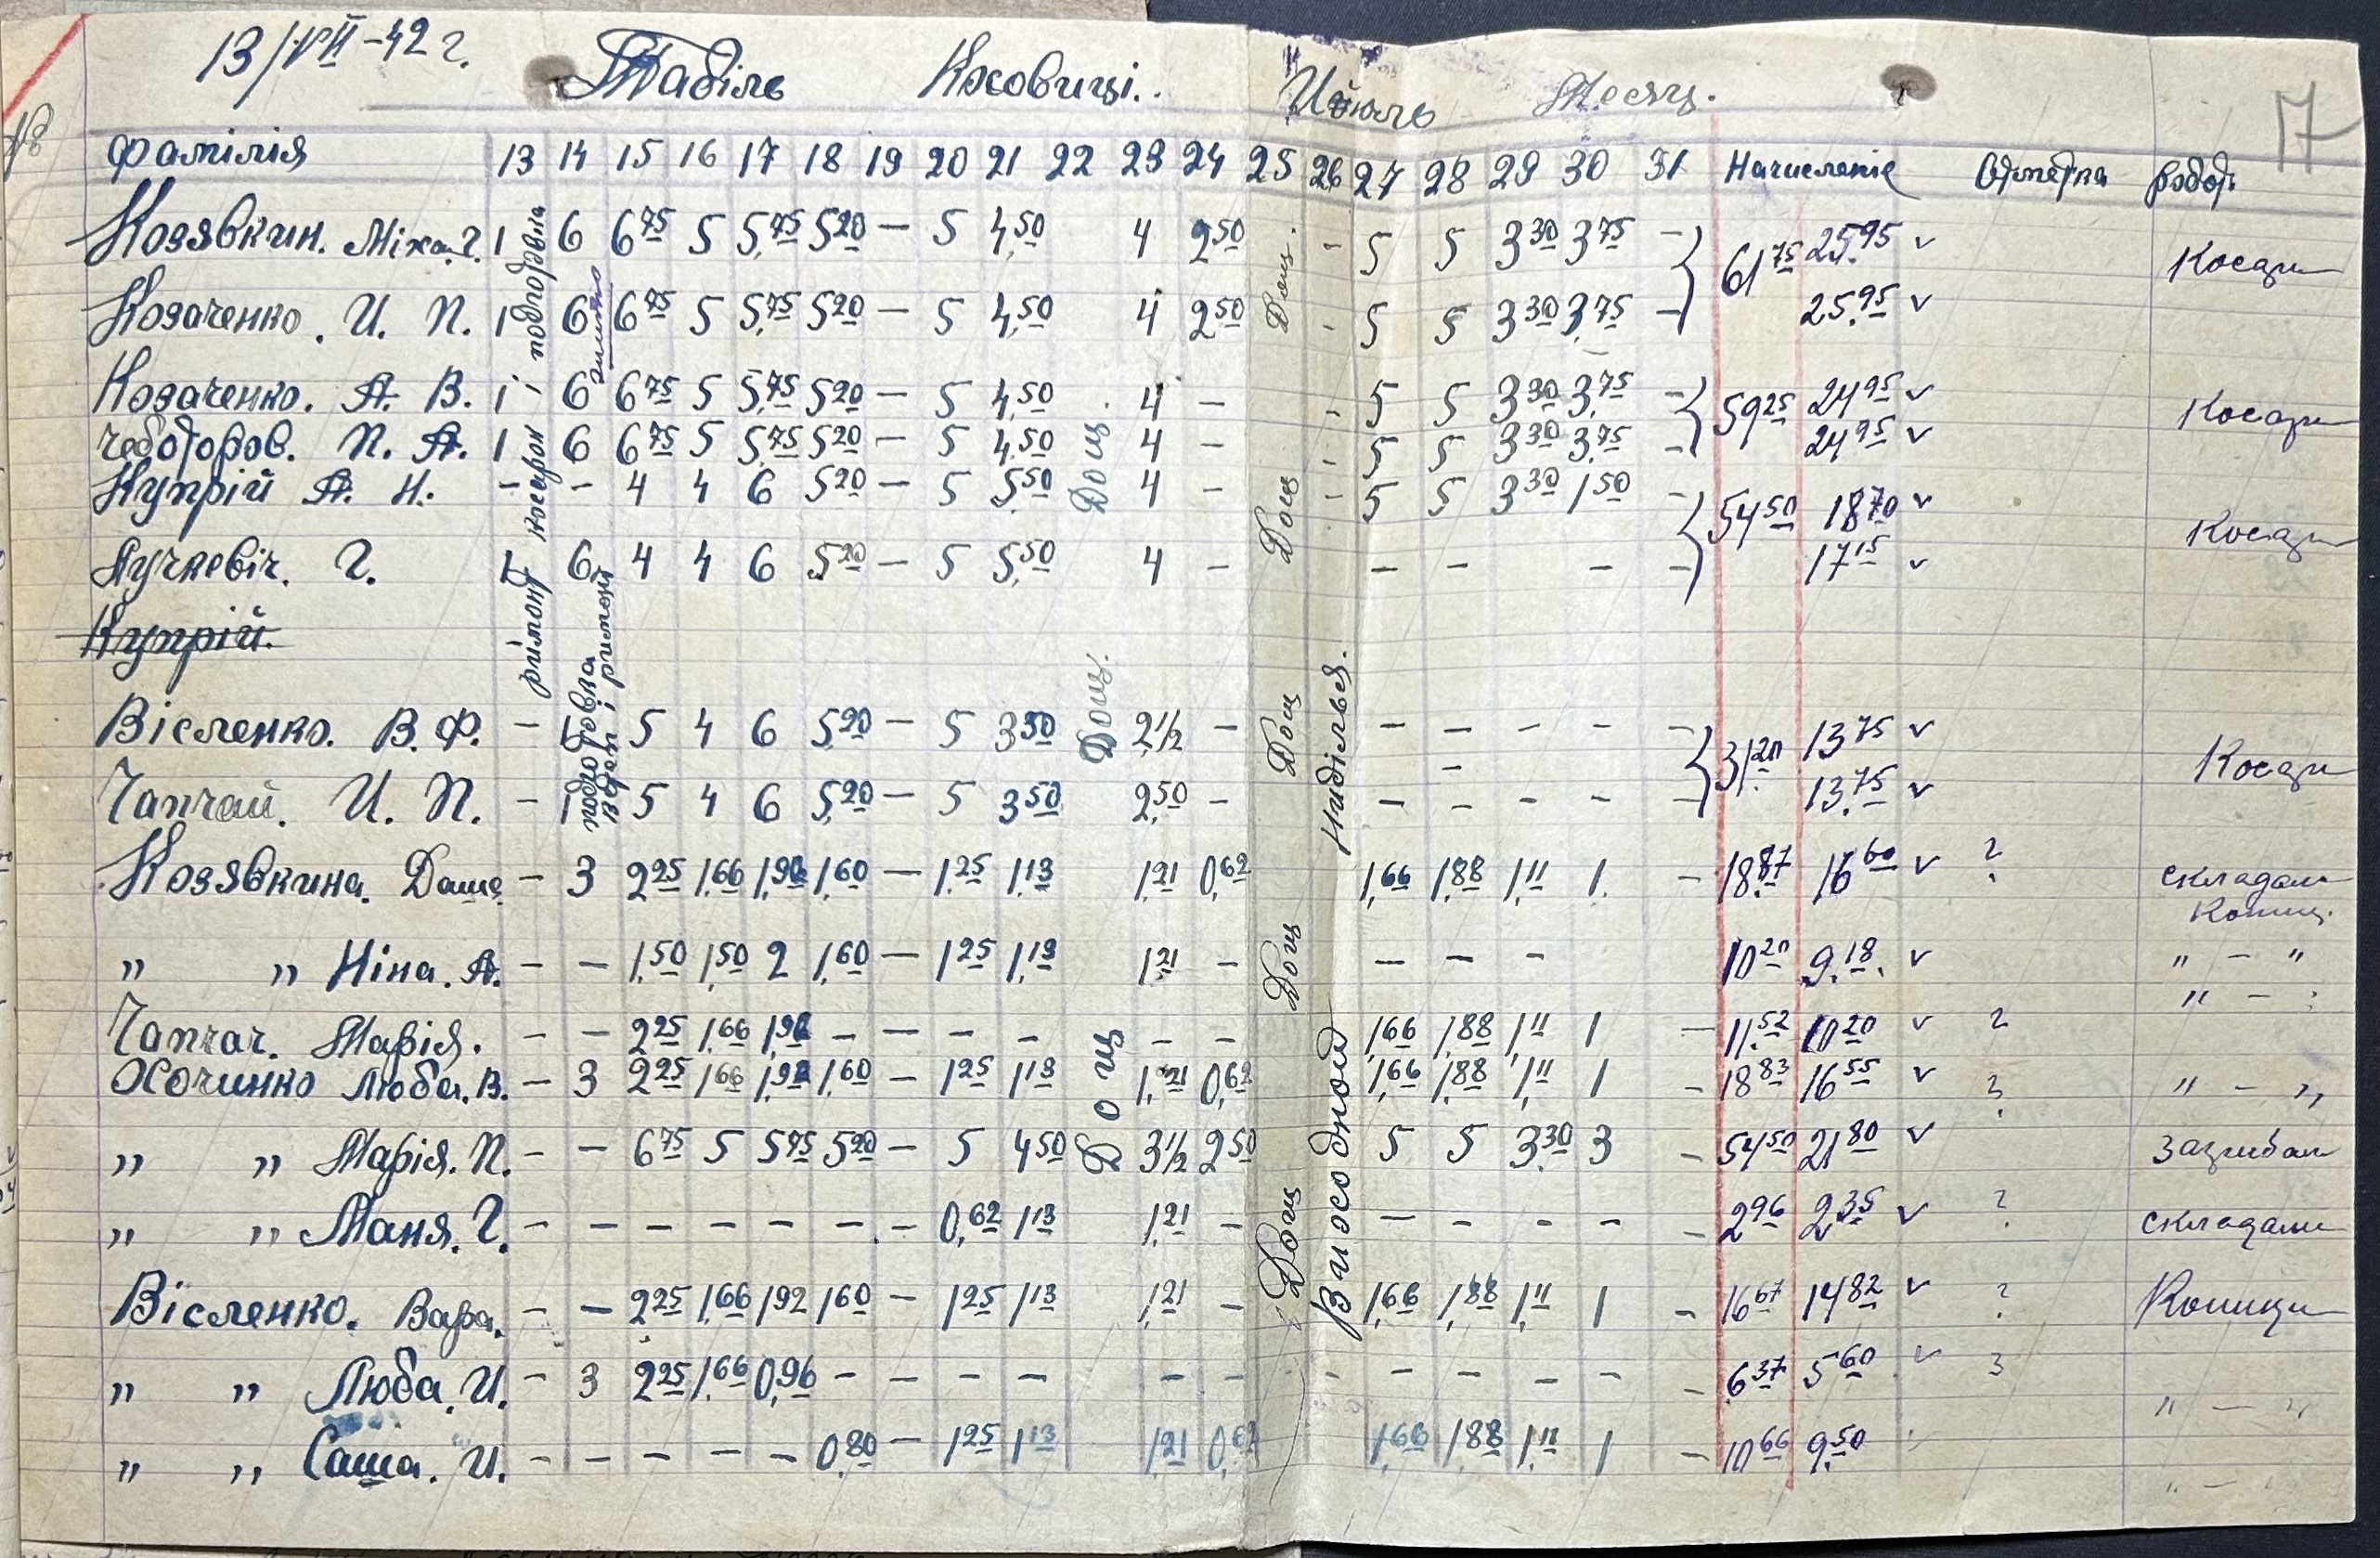 13/VII-42 г. Табіль Косовиці. Июль Месяц. 17
фамілія 13 14 15 16 17 18 19 20 21 22 23 24 25 26 27 28 29 30 31 Начисленіє Отметка робот
Козявкин. Міха. Г. 1 6 6 75 5 5,75 5 20 — 5 4,50 4 2 50 - 5 5 3 30 3 75 - 61 75 25,95 v Косари
Козаченко. И. П. 1 6 6 75 5 5,75 5 20 — 5 4,50 4 2 50 - 5 5 3 30 3,75 - 25,95 v
Козаченко. А. В. 1 - 6 6 75 5 5,75 5 20 — 5 4,50 4 - 5 5 3 30 3,75 - 59 25 24 95 v Косари
Чеботоров. П. А. 1 6 6 75 5 5,75 5 20 — 5 4,50 4 - - 5 5 3 30 3,75 - 24 95 v
Купрій А. Н. - - 4 4 6 5 20 — 5 5,50 4 - - 5 5 3 30 1 50 - 54 50 18 70 v Косари
Лучкевіч. Г. 6 4 4 6 5 20 — 5 5,50 4 - - - - - 17 15 v
Купрій.
Вісленко. В. Ф. - 5 4 6 5,20 — 5 3 50 2 1/2 - - - - - - 31 20 13 75 v Косари
Чапчай. И. П. - 1 5 4 6 5,20 — 5 3 50 2,50 - - - - - - 13,75 v
Козявкина. Даше - 3 2 25 1,66 1,92 1,60 — 1,25 1,13 1,21 0,62 1,66 1,88 1,11 1. - 18,87 16 60 v ? складали
Копиц.
„ „ Ніна. А. - - 1,50 1,50 2 1,60 — 1 25 1,13 1,21 - - - - 10 20 9,18. v „ - „
Чапчач. Марія. - - 2 25 1,66 1,92 - - - - - - 1,66 1,88 1,11 1 - 11,52 10 20 v ?
Охочинко Люба. В. - 3 2 25 1 66 1,92 1,60 — 1 25 1 13 1,21 0,62 1,66 1,88 1,11 1 - 18 83 16 55 v ? „ - „
„ „ Марія. П. - - 6 75 5 5 75 5 20 - 5 4 50 3 1/2 2 50 5 5 3 30 3 - 54 50 21 80 v
„ „ Маня. Г. - - - - - - - 0,62 1 13 1,21 - - - - - - 2 96 2 35 v ? складали
Вісленко. Вара. - - 2 25 1,66 1,92 1 60 - 1 25 1 13 1,21 - 1,66 1,88 1,11 1 - 16 67 14 82 v ? Копици
„ „ Люба. И. - 3 2 25 1,66 0,96 - - - - - - - - - - - - 6 37 5 60 v ? „ - „
„ „ Саша. И. - - - - - 0,80 - 1 25 1 13 1,21 0,62 1,66 1,88 1,11 1 - 10 66 9,50 „ - „
подгодовка
косарок
рімонт
подгодовка
і римонт
Дощ
Дощ.
Дощ
Дощ.
Дощ
Дощ
Дощ
Дощ
Нидільея.
Вихосодноид